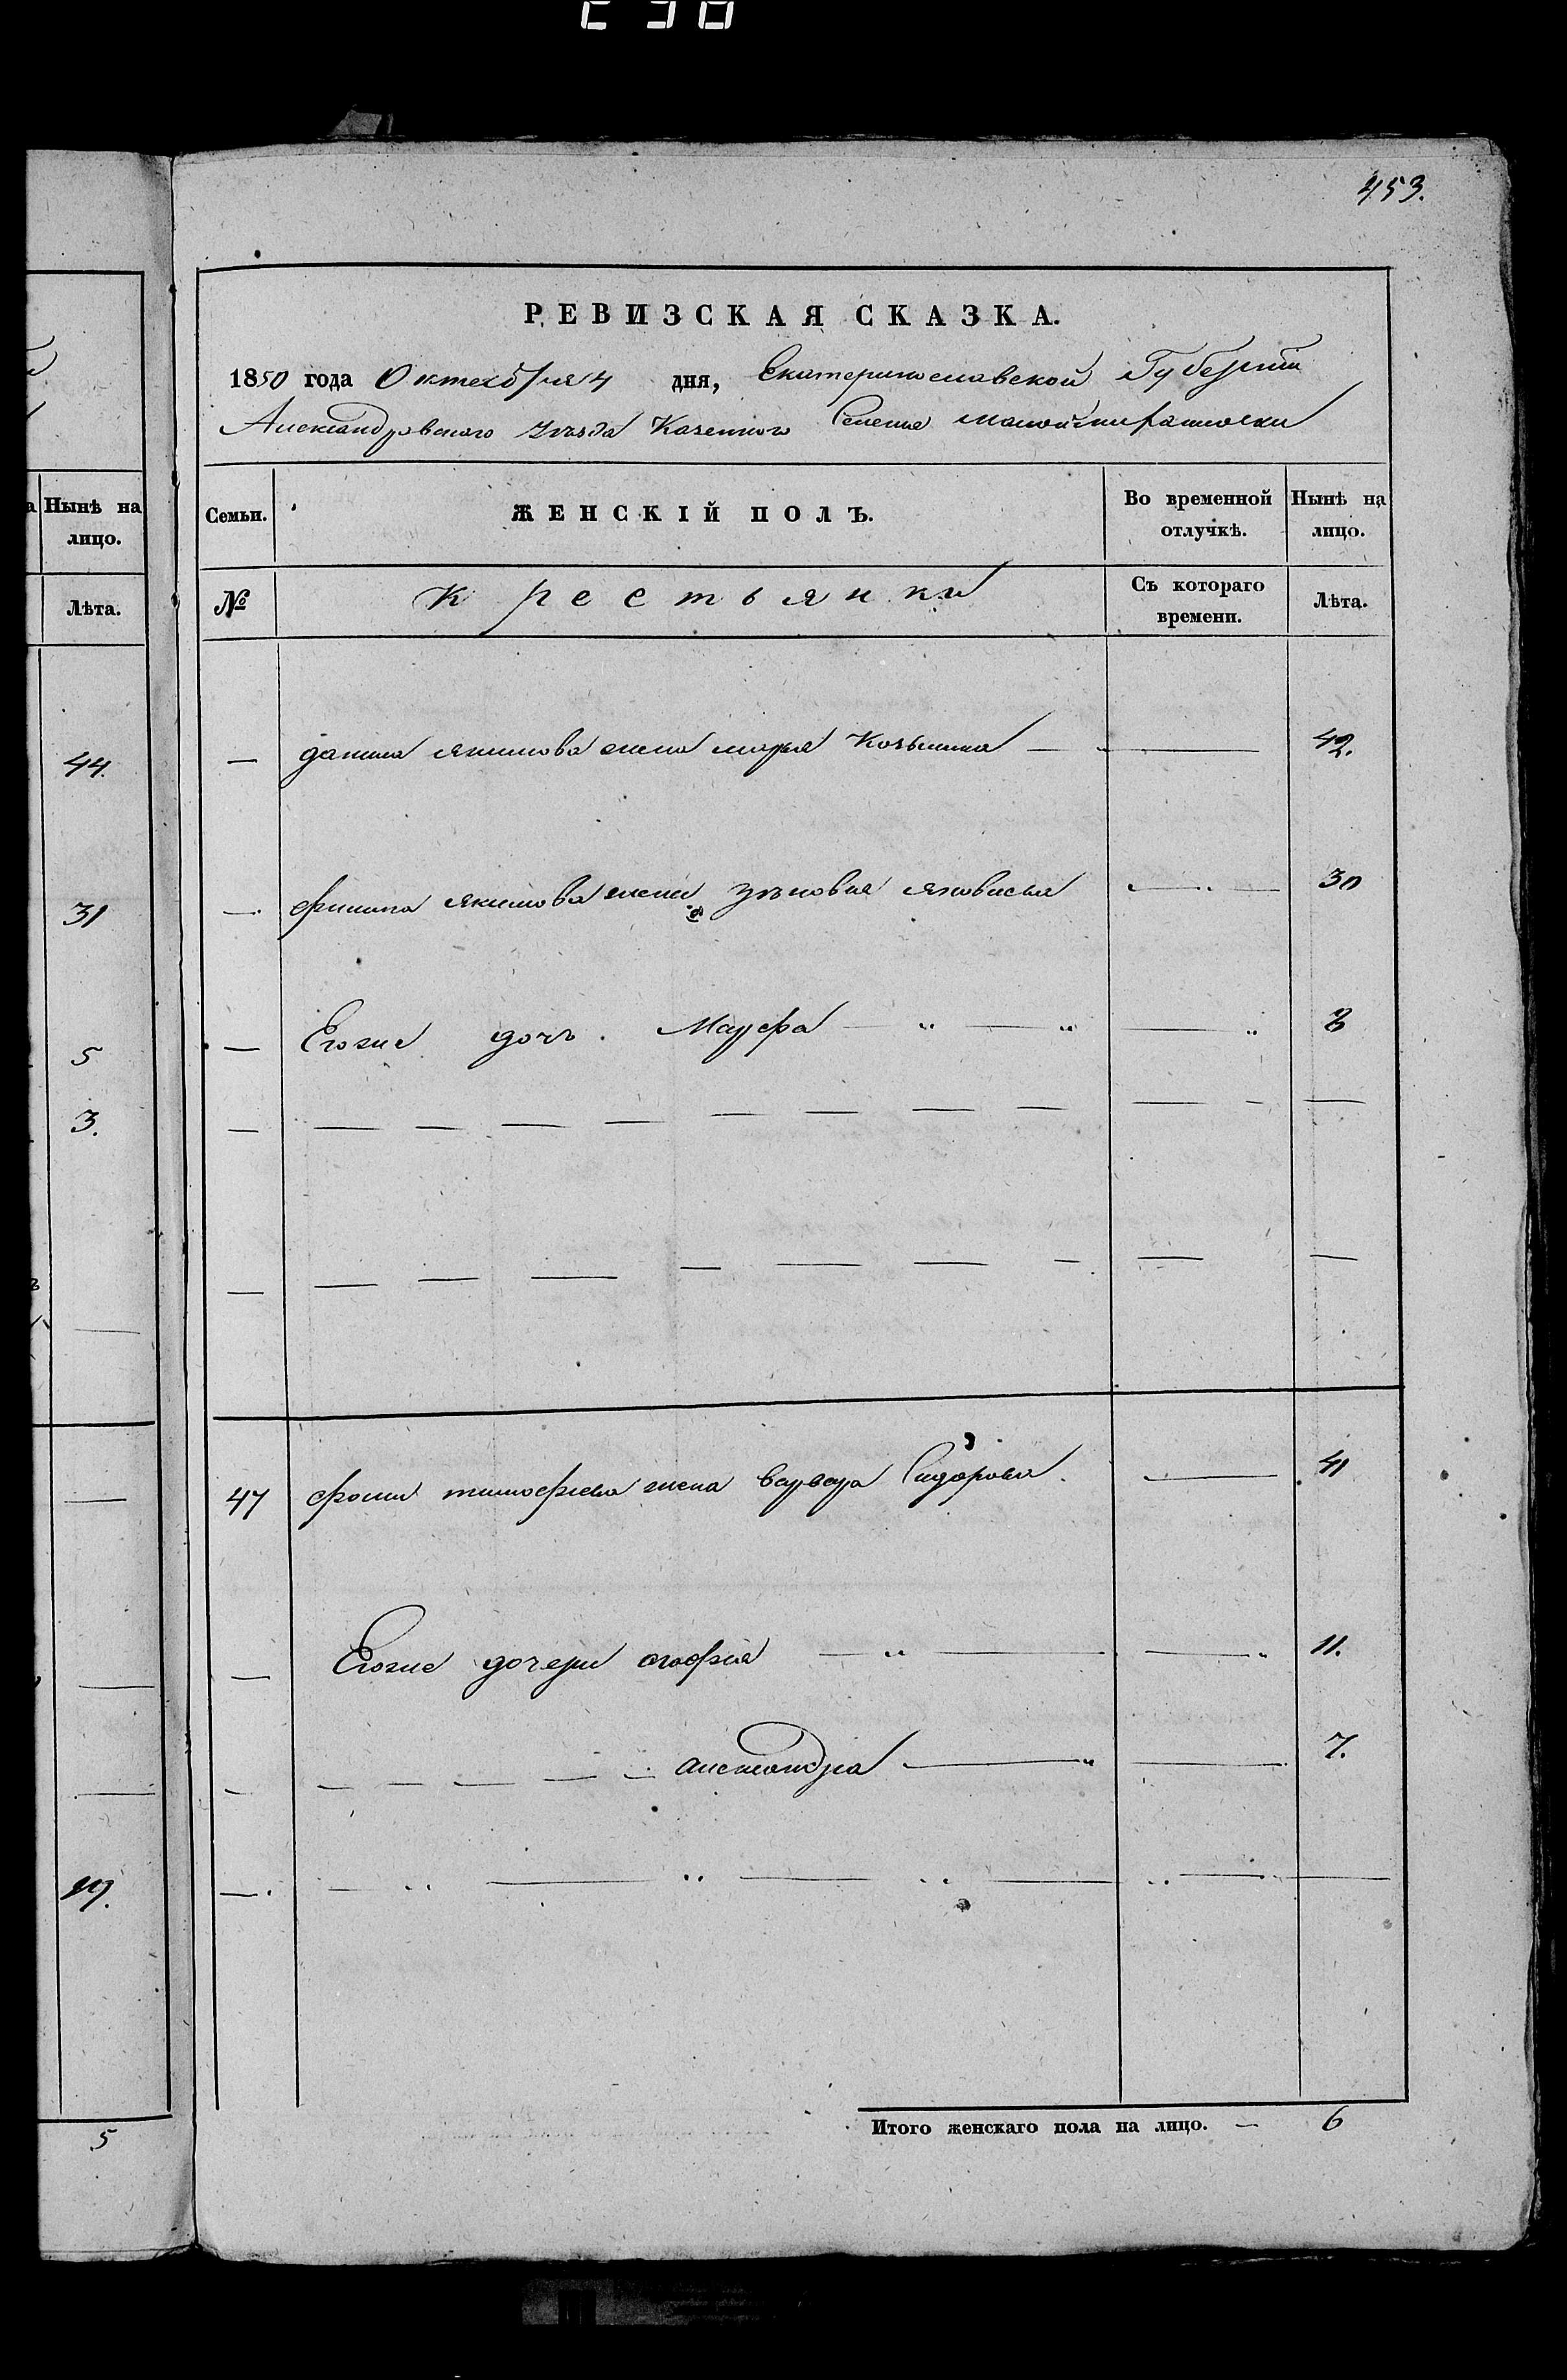 453.
РЕВИЗСКАЯ СКАЗКА.
1850 года Октебря 4 дня, Екатеринославской Губернии
Александровского Уезда Казенного Селения малой
а Нынѣ на лицо.
Лѣта.
44.
31
5
3.
19.
5
Семьи. ЖЕНСКІЙ ПОЛЪ. Во временной отлучкѣ. Нынѣ на лицо.
№ Крестьянки Съ котораго времени. Лѣта.
— данила якимова жена марья Козьмина — — 42.
— филипа якимова жена зѣновия яковлева — 30
— Егоже дочь. Мавра — " — " — " 8
47 фомы тимофеева жена варвара Сидорова. — 41
— Егоже дочери агафия — " — — " 11.
— — — — — александра — " — 7.
Итого женскаго пола на лицо. — 6